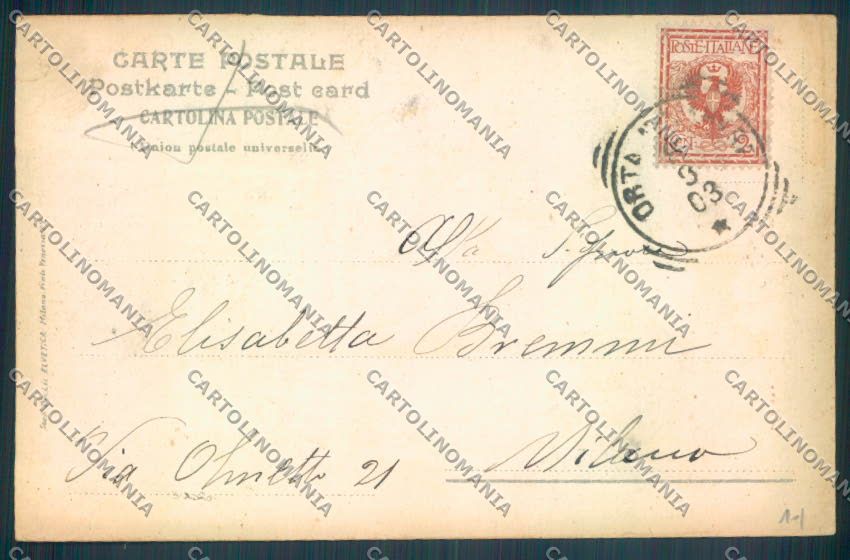 CARTE POSTALE
Postkarte - Post card
CARTOLINA POSTALE
Union postale universelle
POSTE ITALIANE
ORTA
03
Alla Signora
Elisabetta Bremmi
Via Olmetto 21
Milano
ELVETICA Milano
CARTOLINOMANIA